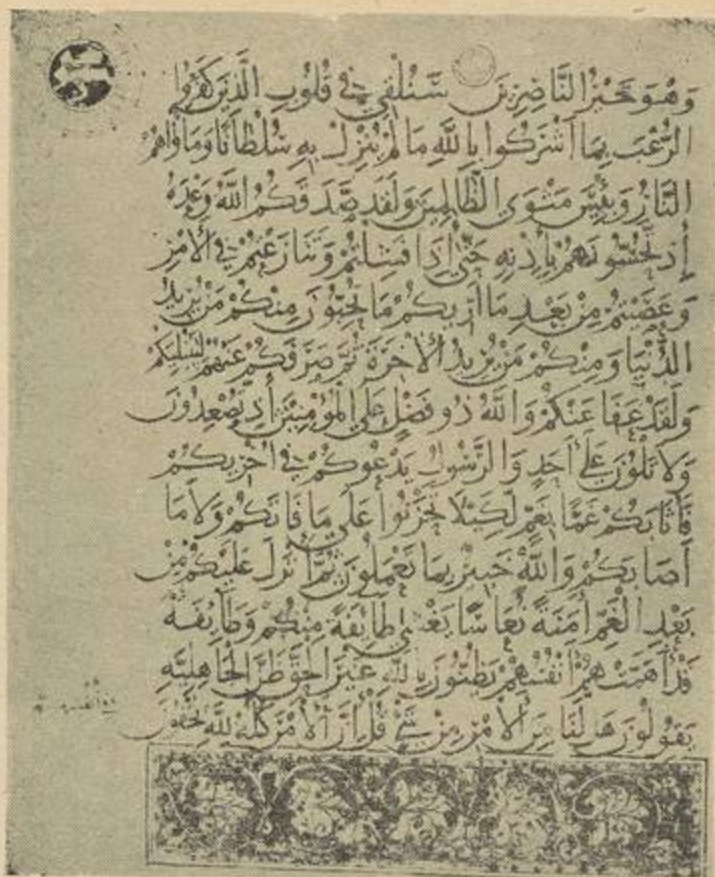 وَهُوَ خَيْرُ النَّاصِرِينَ سَنُلْقِي فِي قُلُوبِ الَّذِينَ كَفَرُوا
الرُّعْبَ بِمَا أَشْرَكُوا بِاللَّهِ مَا لَمْ يُنَزِّلْ بِهِ سُلْطَانًا وَمَاوَاهُمُ
النَّارُ وَبِئْسَ مَثْوَى الظَّالِمِينَ وَلَقَدْ صَدَقَكُمُ اللَّهُ وَعْدَهُ
إِذْ تَحُسُّونَهُمْ بِإِذْنِهِ حَتَّى إِذَا فَشِلْتُمْ وَتَنَازَعْتُمْ فِي الْأَمْرِ
وَعَصَيْتُمْ مِنْ بَعْدِ مَا أَرَيكُمْ مَا تُحِبُّونَ مِنْكُمْ مَنْ يُرِيدُ
الدُّنْيَا وَمِنْكُمْ مَنْ يُرِيدُ الْآخِرَةَ ثُمَّ صَرَفَكُمْ عَنْهُمْ لِيَبْتَلِيَكُمْ
وَلَقَدْ عَفَا عَنْكُمْ وَاللَّهُ ذُو فَضْلٍ عَلَى الْمُؤْمِنِينَ إِذْ تُصْعِدُونَ
وَلَا تَلْوُنَ عَلَى أَحَدٍ وَالرَّسُولُ يَدْعُوكُمْ فِي أُخْرَيكُمْ
فَأَثَابَكُمْ غَمًّا بِغَمٍّ لِكَيْلَا تَحْزَنُوا عَلَى مَا فَاتَكُمْ وَلَا مَا
أَصَابَكُمْ وَاللَّهُ خَبِيرٌ بِمَا تَعْمَلُونَ ثُمَّ أَنْزَلَ عَلَيْكُمْ مِنْ
بَعْدِ الْغَمِّ أَمَنَةً نُعَاسًا يَغْشَى طَائِفَةً مِنْكُمْ وَطَائِفَةٌ
قَدْ أَهَمَّتْهُمْ أَنْفُسُهُمْ يَظُنُّونَ بِاللَّهِ غَيْرَ الْحَقِّ ظَنَّ الْجَاهِلِيَّةِ
يَقُولُونَ هَلْ لَنَا مِنَ الْأَمْرِ مِنْ شَيْءٍ قُلْ إِنَّ الْأَمْرَ كُلَّهُ لِلَّهِ يُخْفُونَ